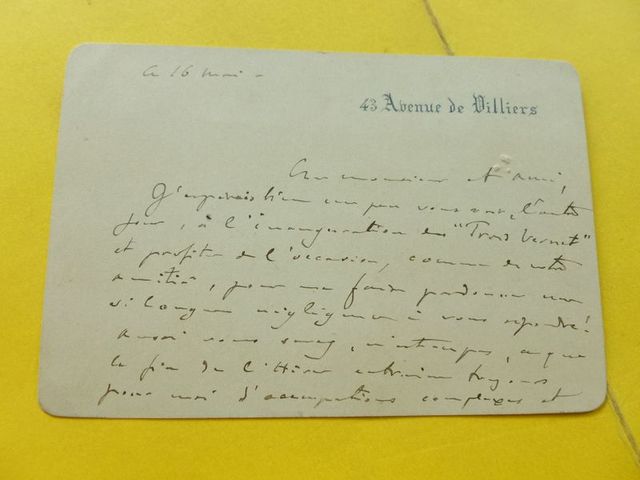 ce 16 mai -
43 Avenue de Villiers
Cher monsieur et ami,
J'espérais bien un peu vous voir, l'autre
jour, à l'inauguration des "Trois Vernet"
et profiter de l'occasion, comme de votre
amitié, pour me faire pardonner une
si longue négligence à vous répondre!
aussi vous savez, n'est-ce pas, ce que
la fin de l'Hiver entraîne toujours
pour moi d'occupations complexes et